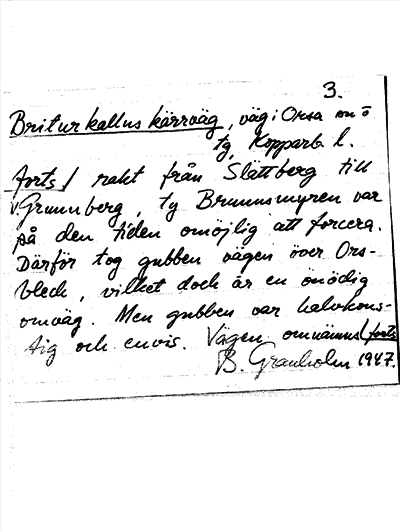 3.
Briturkallus kärrväg, väg i Orsa sn ö
tg, Kopparb. l.
forts/ rakt från Slättberg till
v. Grunnberg, ty Brunnsmyren var
på den tiden omöjlig att forcera.
Därför tog gubben vägen över Ors-
bleck, vilket dock är en onödig
omväg. Men gubben var halvkons-
tig och envis. Vägen omnämnes/forts
B. Granholm 1947.